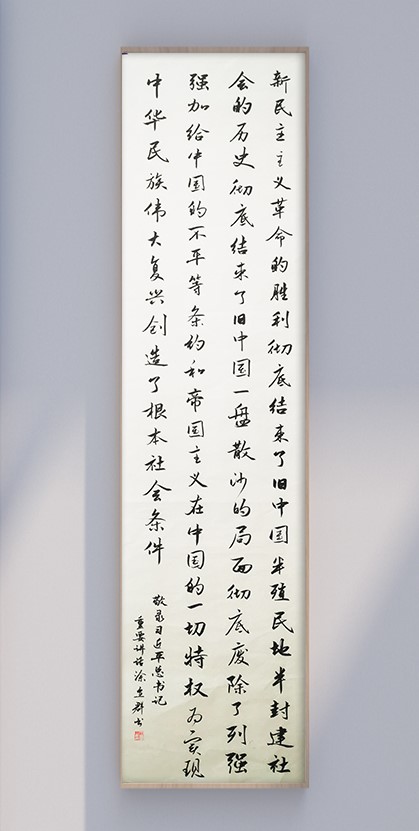 新民主主义革命的胜利彻底结束了旧中国半殖民地半封建社
会的历史彻底结束了旧中国一盘散沙的局面彻底废除了列强
强加给中国的不平等条约和帝国主义在中国的一切特权为实现
中华民族伟大复兴创造了根本社会条件
敬录习近平总书记
重要讲话涂 群书